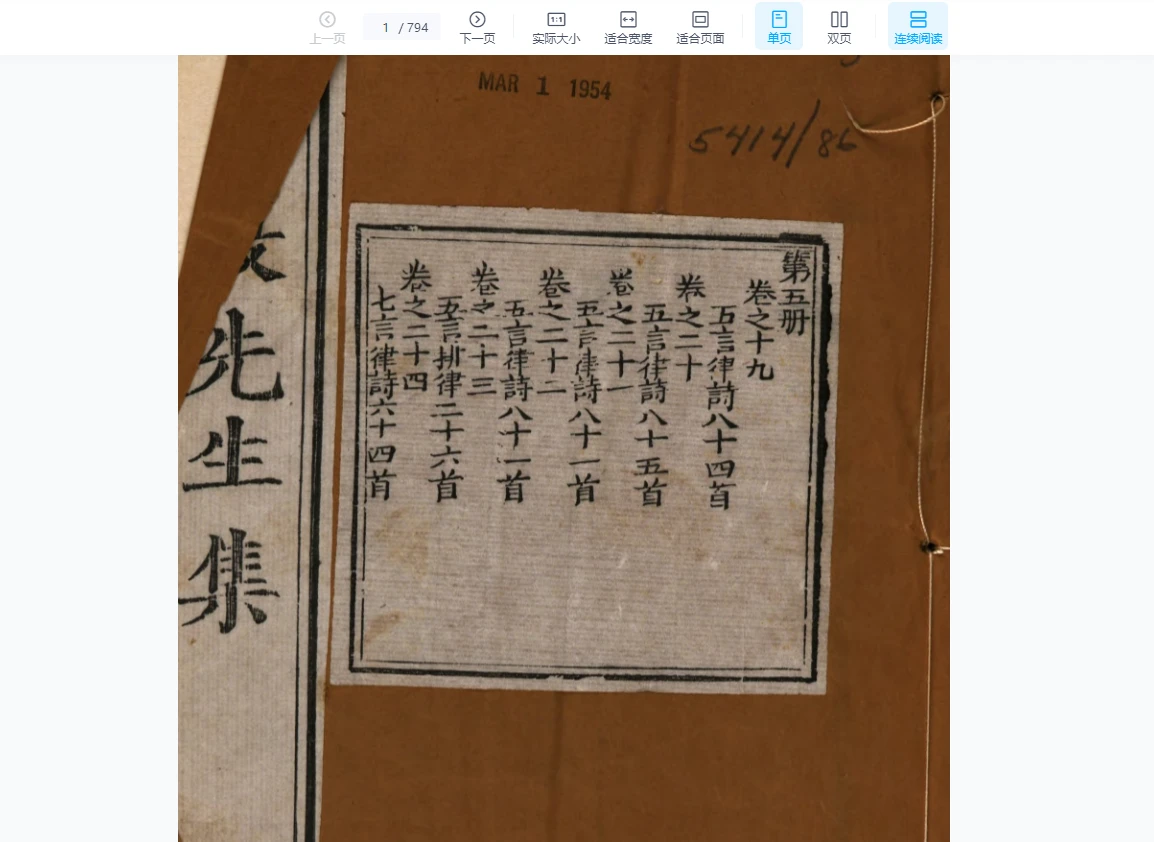 上一页
1 / 794
下一页
1:1
实际大小
适合宽度
适合页面
单页
双页
连续阅读
MAR 1 1954
5414/86
第五册
卷之十九
五言律詩八十四首
卷之二十
五言律詩八十五首
卷之二十一
五言律詩八十一首
卷之二十二
五言律詩八十一首
卷之二十三
五言排律二十六首
卷之二十四
七言律詩六十四首
先生集